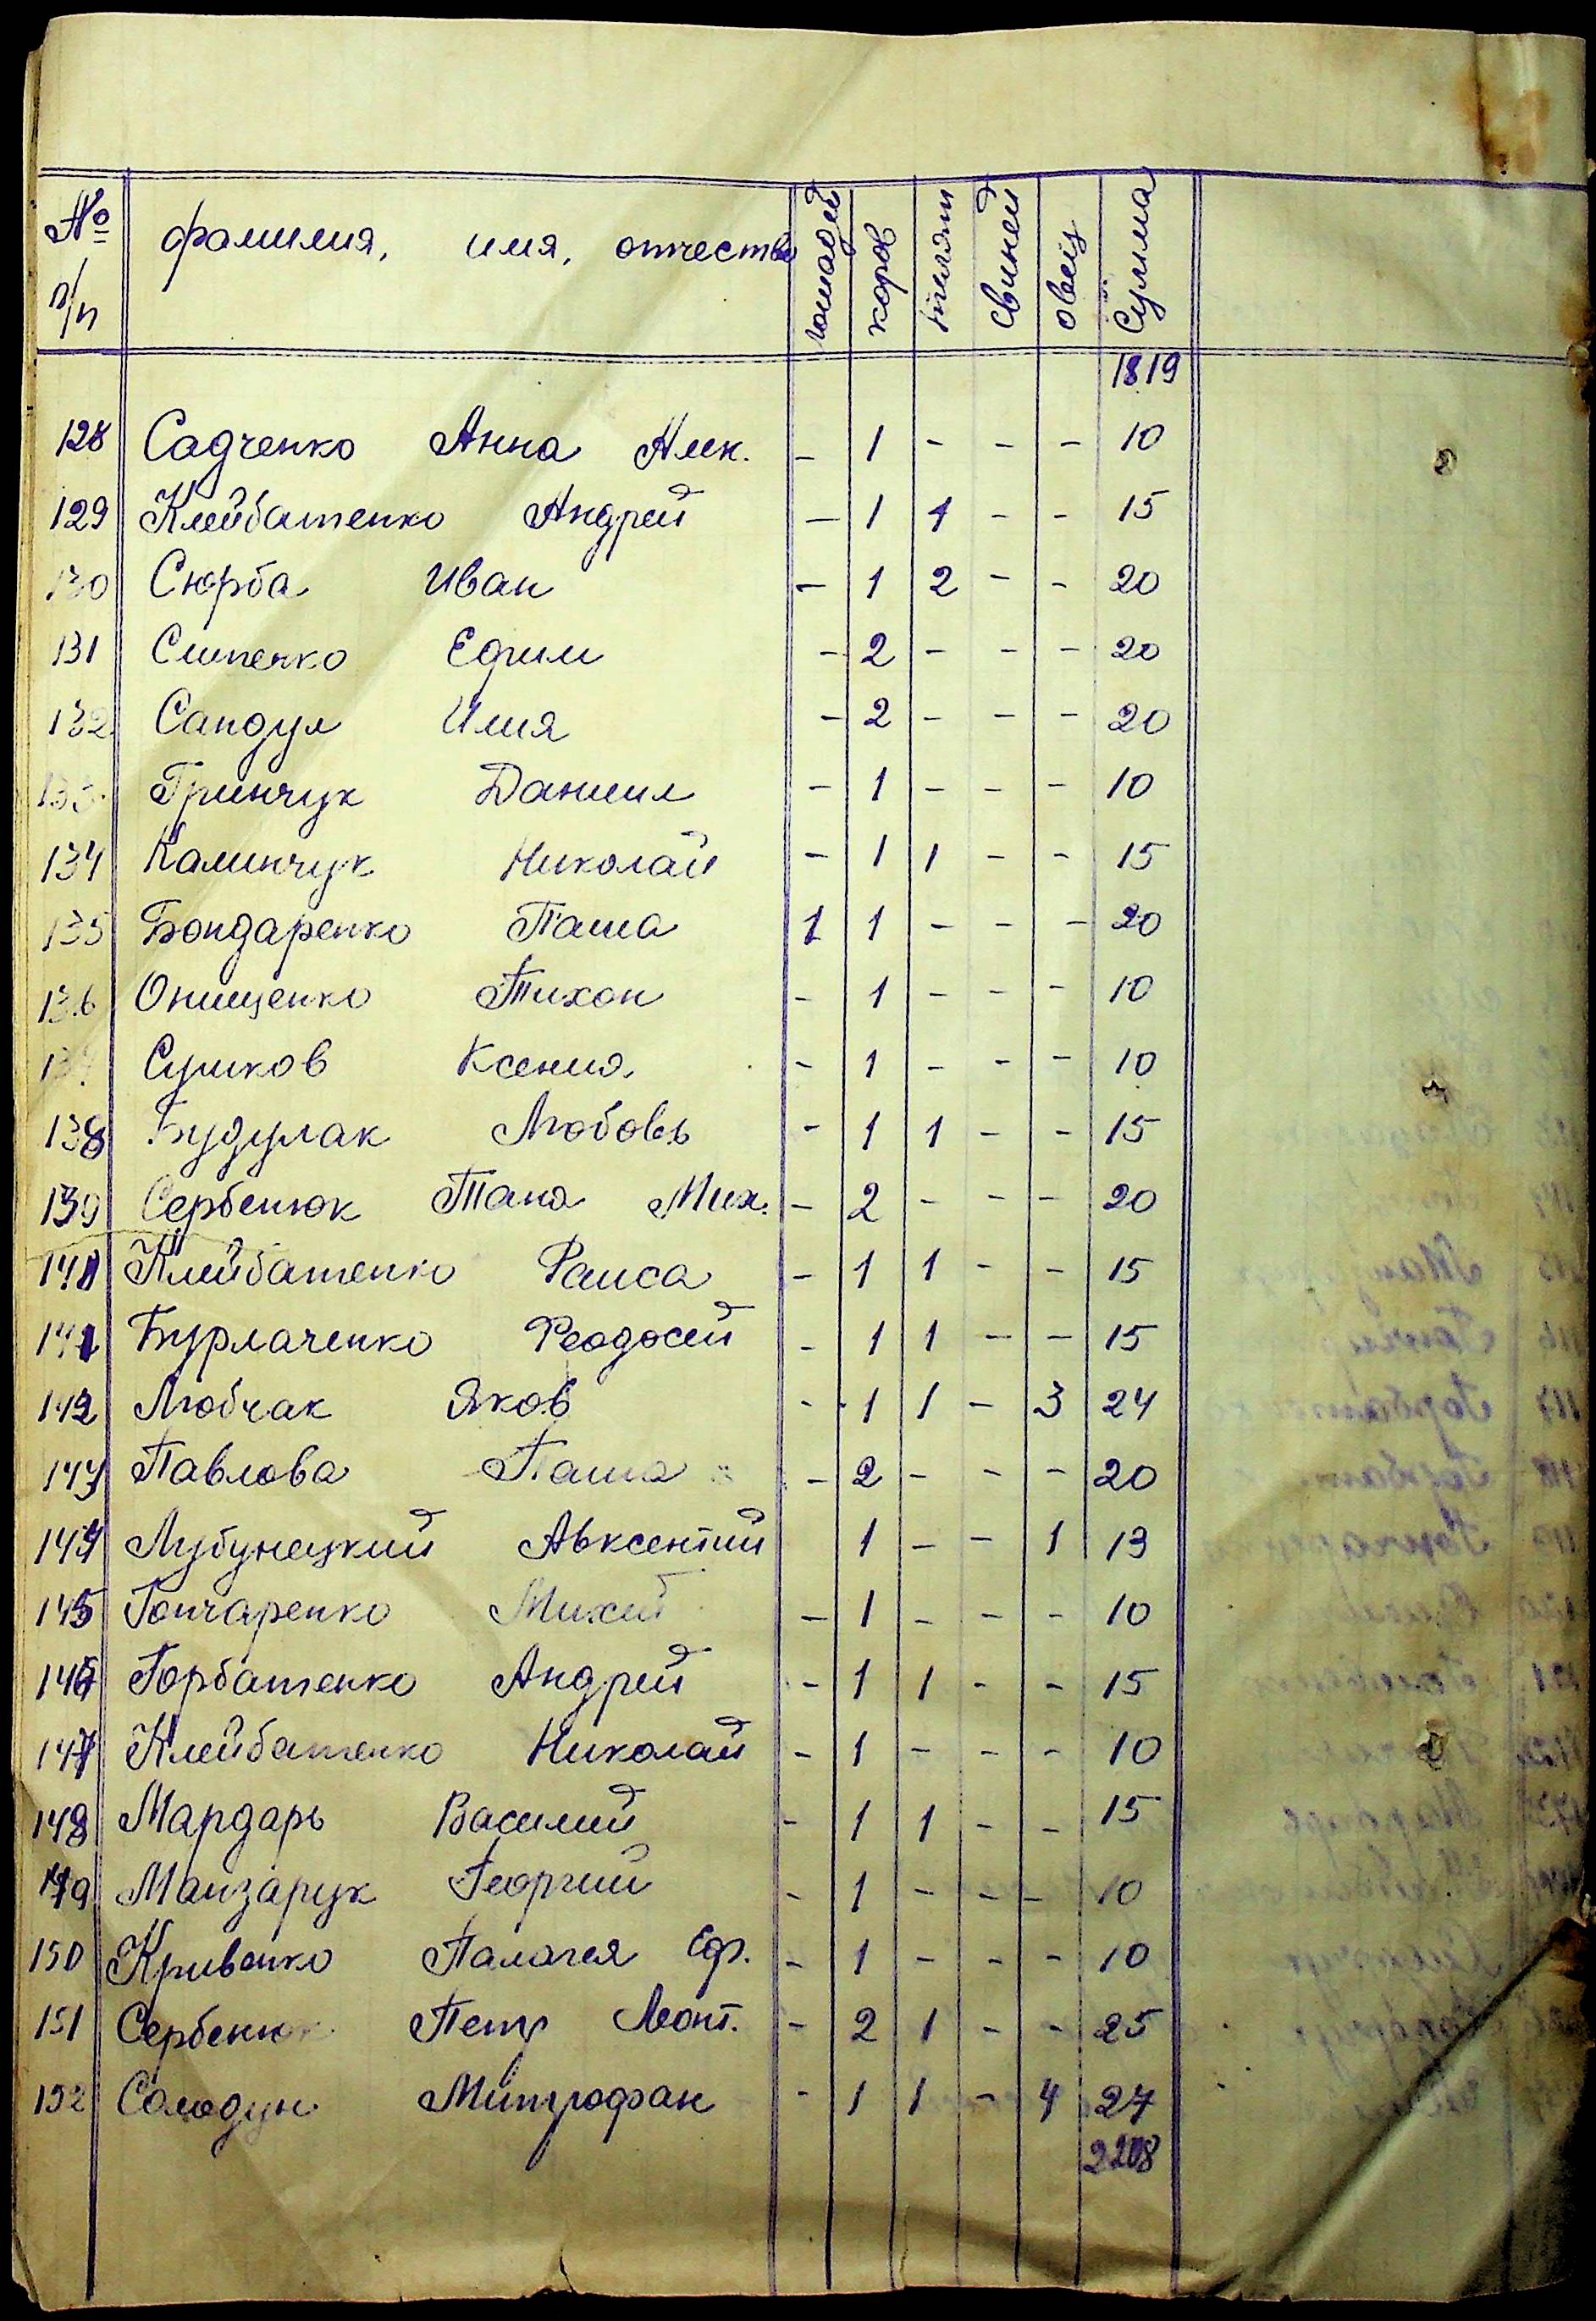 № п/п фамилия, имя, отчество лошадей коров телят свиней овец Сумма
1819
128 Садченко Анна Алек. - 1 - - - 10
129 Клейбатенко Андрей - 1 1 - - 15
130 Сюрба Иван - 1 2 - - 20
131 Ситенко Ефим - 2 - - - 20
132 Сандул Илия - 2 - - - 20
133 Гринчук Даниил - 1 - - - 10
134 Калинчук Николай - 1 1 - - 15
135 Бондаренко Паша 1 1 - - - 20
136 Онищенко Тихон - 1 - - - 10
137 Сушков Ксения - 1 - - - 10
138 Будулак Любовь - 1 1 - - 15
139 Сербенюк Тана Мих. - 2 - - - 20
140 Клейбатенко Раиса - 1 1 - - 15
141 Бурлаченко Феодосей - 1 1 - - 15
142 Любчак Яков - 1 1 - 3 24
143 Павлова Паша - 2 - - - 20
144 Лубунецкий Авксентий 1 - - 1 13
145 Гончаренко Михей - 1 - - - 10
146 Горбатенко Андрей - 1 1 - - 15
147 Клейбатенко Николай - 1 - - - 10
148 Мардарь Василий - 1 1 - - 15
149 Манзарук Георгий - 1 - - - 10
150 Кривенко Палагея Еф. - 1 - - - 10
151 Сербенюк Петр Леонт. - 2 1 - - 25
152 Солодун Митрофан - 1 1 - 4 27
2208